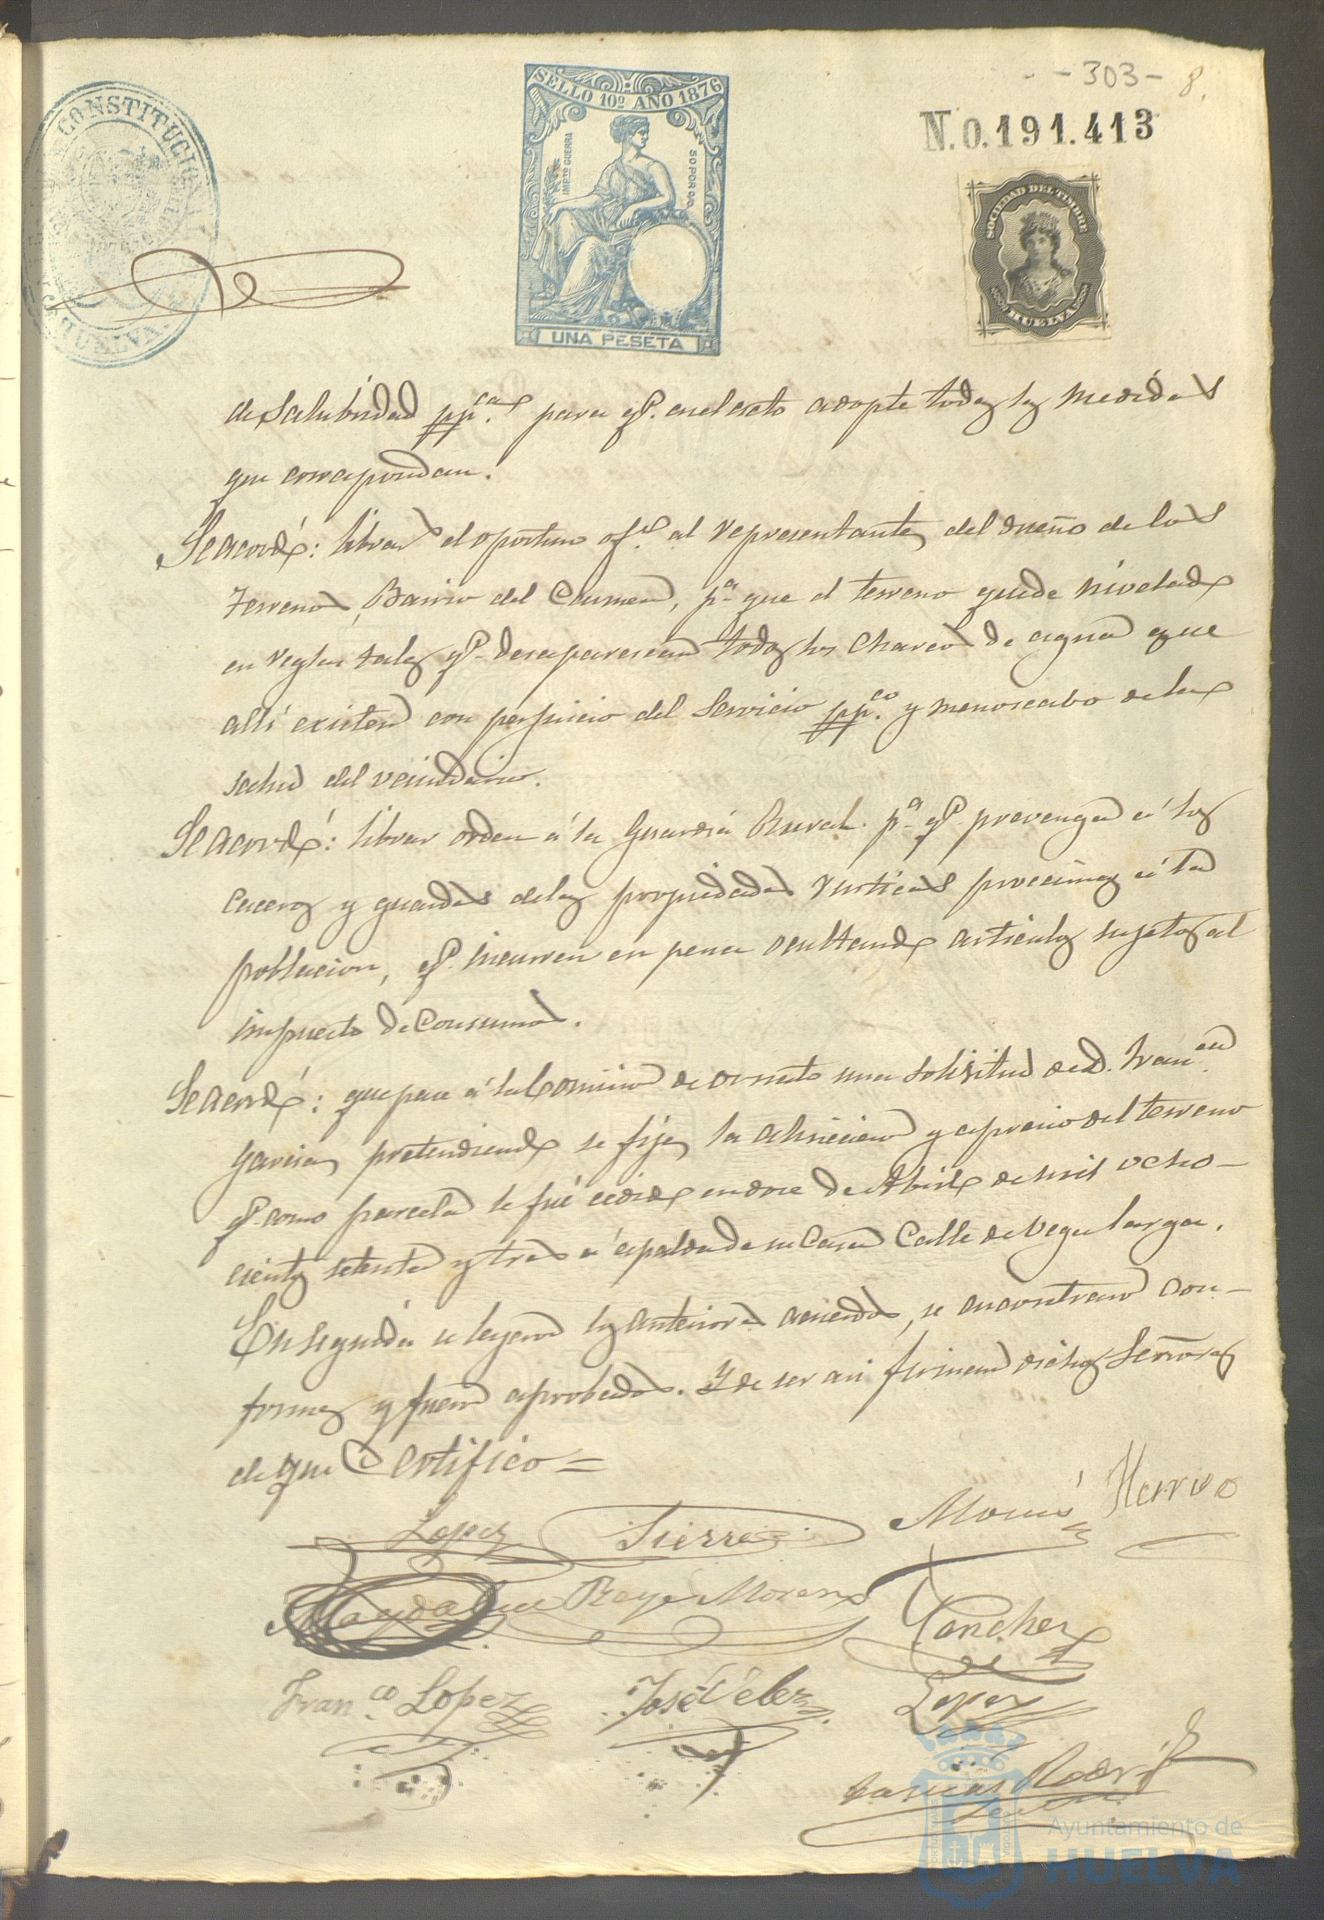 - 303 - 8.
N.0.191.413
CONSTITUCIONAL
HUELVA
SELLO 10º AÑO 1876
IMPTO GUERRA
50 POR 00
UNA PESETA
SOCIEDAD DEL TIMBRE
HUELVA
de salubridad pp.cas para qe. en el acto adopte todas las medidas
que correspondan.
Se acordó: librar el oportuno ofº. al representante del dueño de los
terrenos Barrio del Carmen, pa. que el terreno quede nivelado
en reglas tales qe. desaparescan todos los charcos de agua que
allí existen con perjuicio del servicio pp.co y menoscabo de la
salud del vecindario.
Se acordó: librar orden á la Guardia Rural pa. qe. prevenga á los
caceros y guardas de las propiedades rusticas procsimas á la
poblacion, qe. incurren en pena ocultando articulos sujetos al
impuesto de Consumos.
Se acordó: que pase á la Comision de ornato una solisitud de D. Fran.co
Garcia, pretendiendo se fije la alineacion y aprecio del terreno
qe. como parcela le fué cedido en doce de Abril de mil ocho-
cientos setenta y tres á espalda de su Casa Calle de Vega larga.
En seguida se leyeron los anteriores acuerdos, se encontraron con-
formes y fueron aprobados. Y de ser asi firman dichos Señores
de que Certifico =
Lopez Sierra Hierro
Magdalena Moreno Sanchez
Fran.co Lopez José Vélez Lopez
Rodrig
Ayuntamiento de
HUELVA